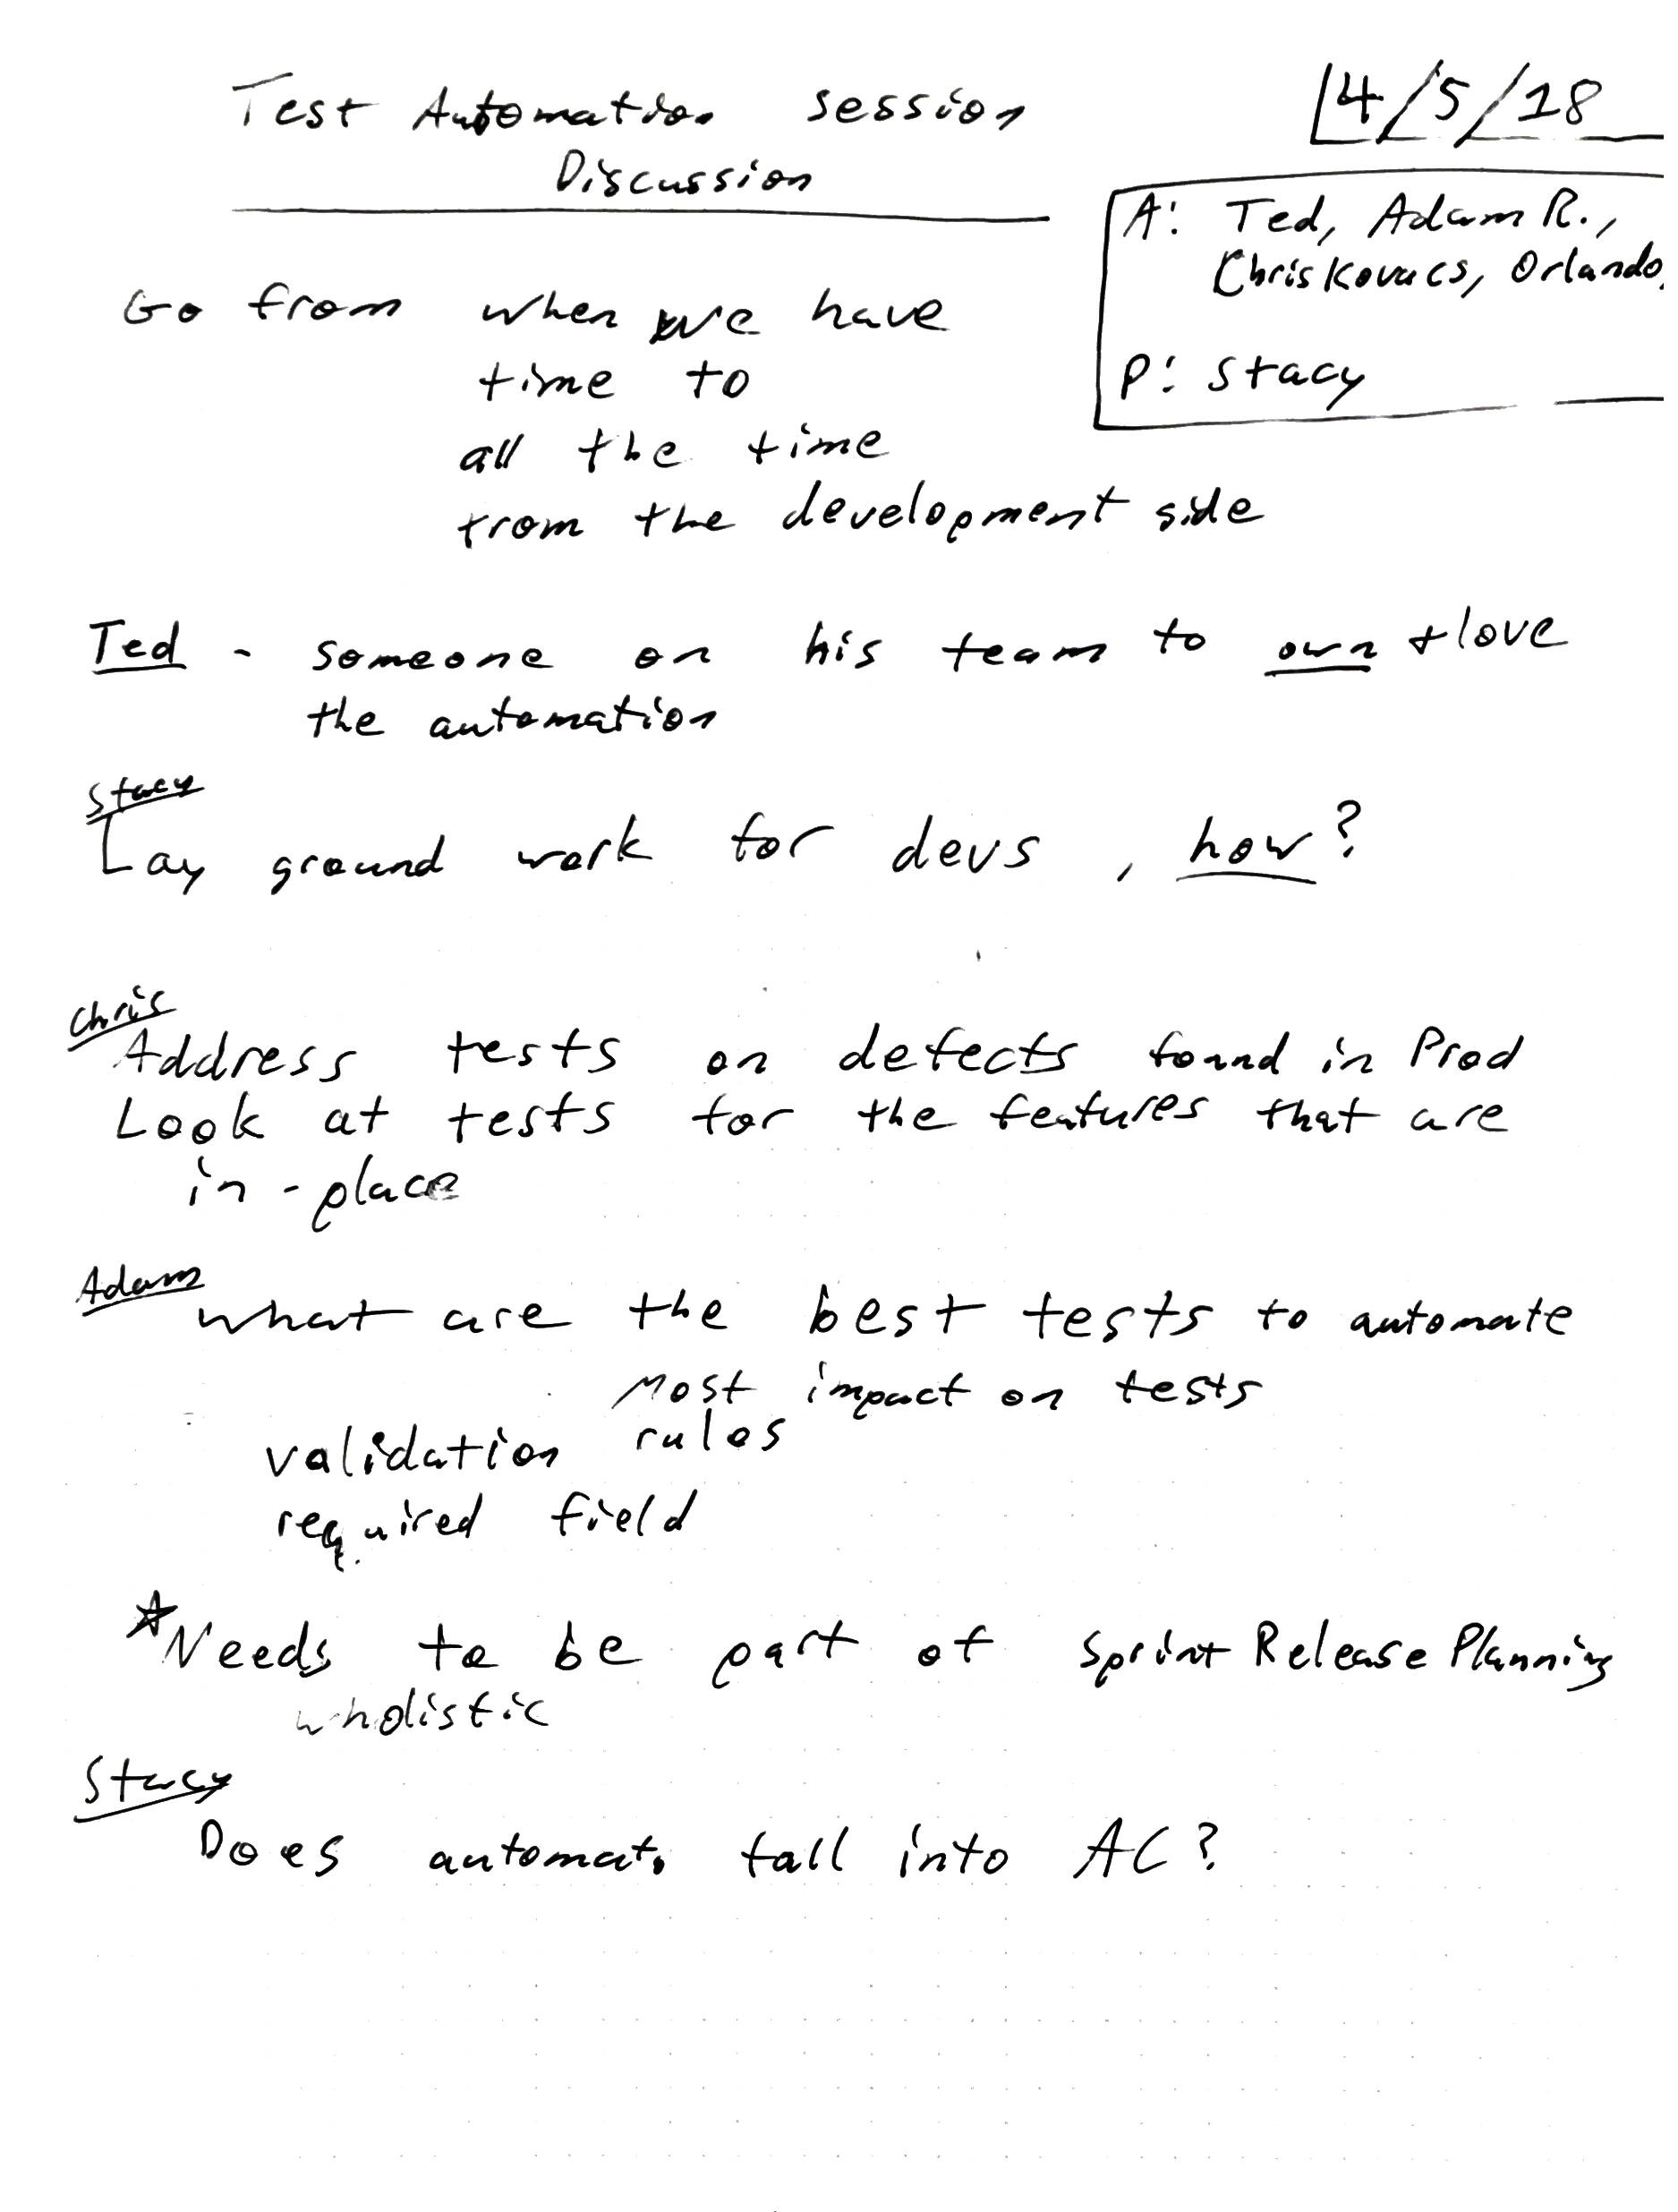 Test Automation session
Discussion
4/5/18
A: Ted, Adam R.,
Chris Kovacs, Orlando,
P: Stacy
Go from when we have
time to
all the time
from the development side
Ted - someone on his team to own + love
the automation
Stacy
Lay ground work for devs, how?
Chris
Address tests on defects found in Prod
Look at tests for the features that are
in-place
Adam
what are the best tests to automate
Most impact on tests
validation rules
required field
*Needs to be part of Sprint Release Planning
wholistic
Stacy
Does automat. fall into AC?